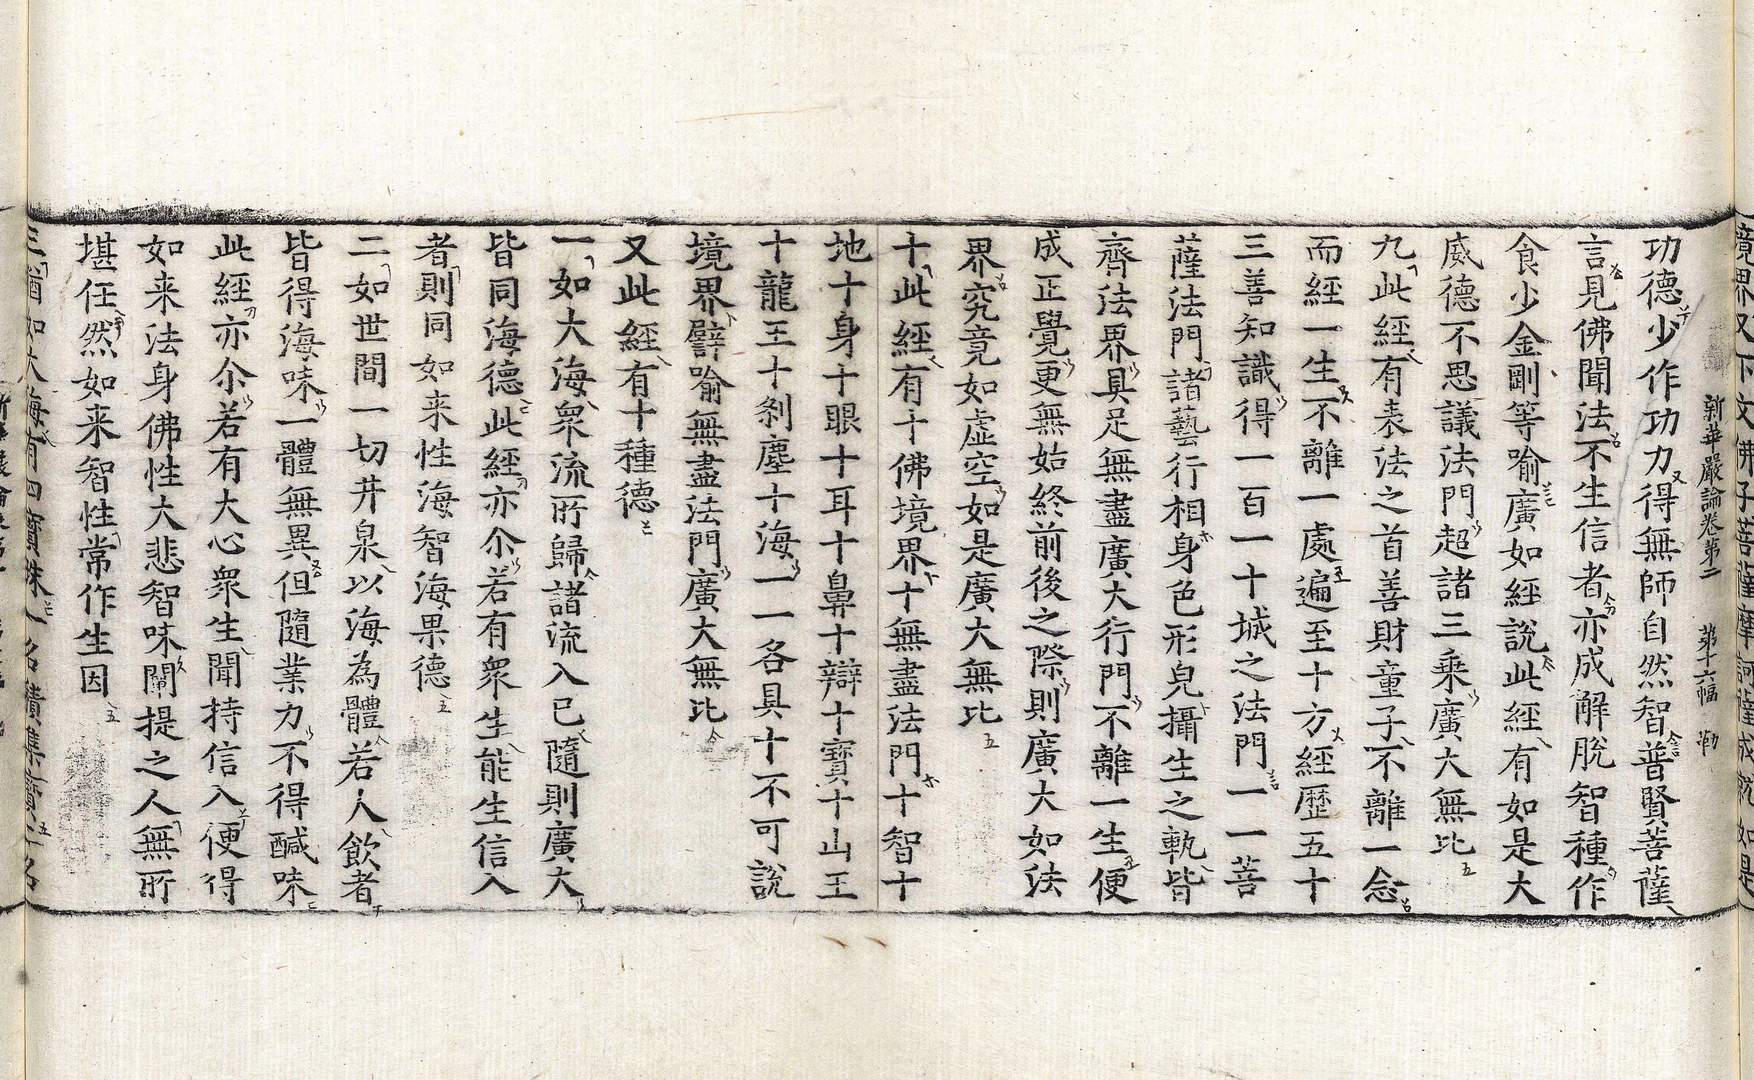 境界又下文佛子菩薩摩訶薩成就如是
新華嚴論卷第二 第十六幅 勒
功德少作功力得無師自然智普賢菩薩
言見佛聞法不生信者亦成解脫智種作
食少金剛等喻廣如經說此經有如是大
威德不思議法門超諸三乘廣大無比
九此經有表法之首善財童子不離一念
而經一生不離一處遍至十方經歷五十
三善知識得一百一十城之法門一一菩
薩法門諸藝行相身色形皃攝生之軌皆
齊法界具足無盡廣大行門不離一生便
成正覺更無始終前後之際則廣大如法
界究竟如虛空如是廣大無比
十此經有十佛境界十無盡法門十智十
地十身十眼十耳十鼻十辯十寶十山王
十龍王十剎塵十海一一各具十不可說
境界譬喻無盡法門廣大無比
又此經有十種德
一如大海眾流所歸諸流入已隨則廣大
皆同海德此經亦尒若有衆生能生信入
者則同如来性海智海果德
二如世間一切井泉以海為體若人飲者
皆得海味一體無異但隨業力不得醎味
此經亦尒若有大心衆生聞持信入便得
如来法身佛性大悲智味闡提之人無所
堪任然如来智性常作生因
三猶如大海有四寶珠一名積集寶二名